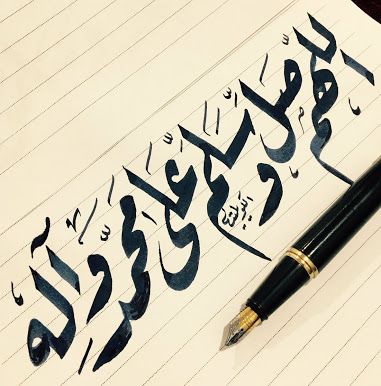 اللهم صَلِّ و سَلِّم عَلَى محمد وَّ آله